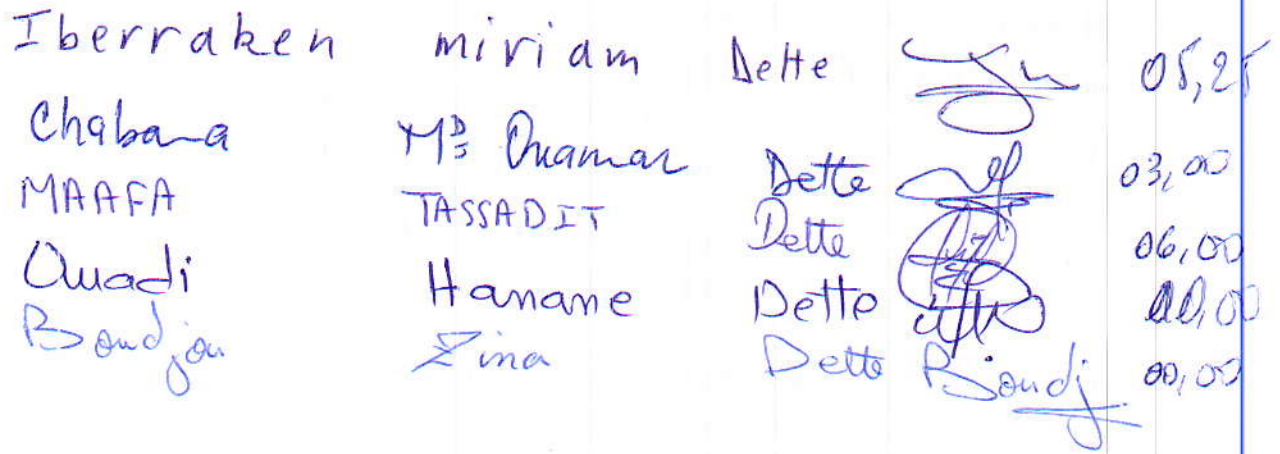 Iberraken miriam Dette 05,25
Chabana Md Ouamar Dette 03,00
MAAFA TASSADIT Dette 06,00
Ouadi Hanane Dette 00,00
Boudjou Zina Dette Boudj 00,00